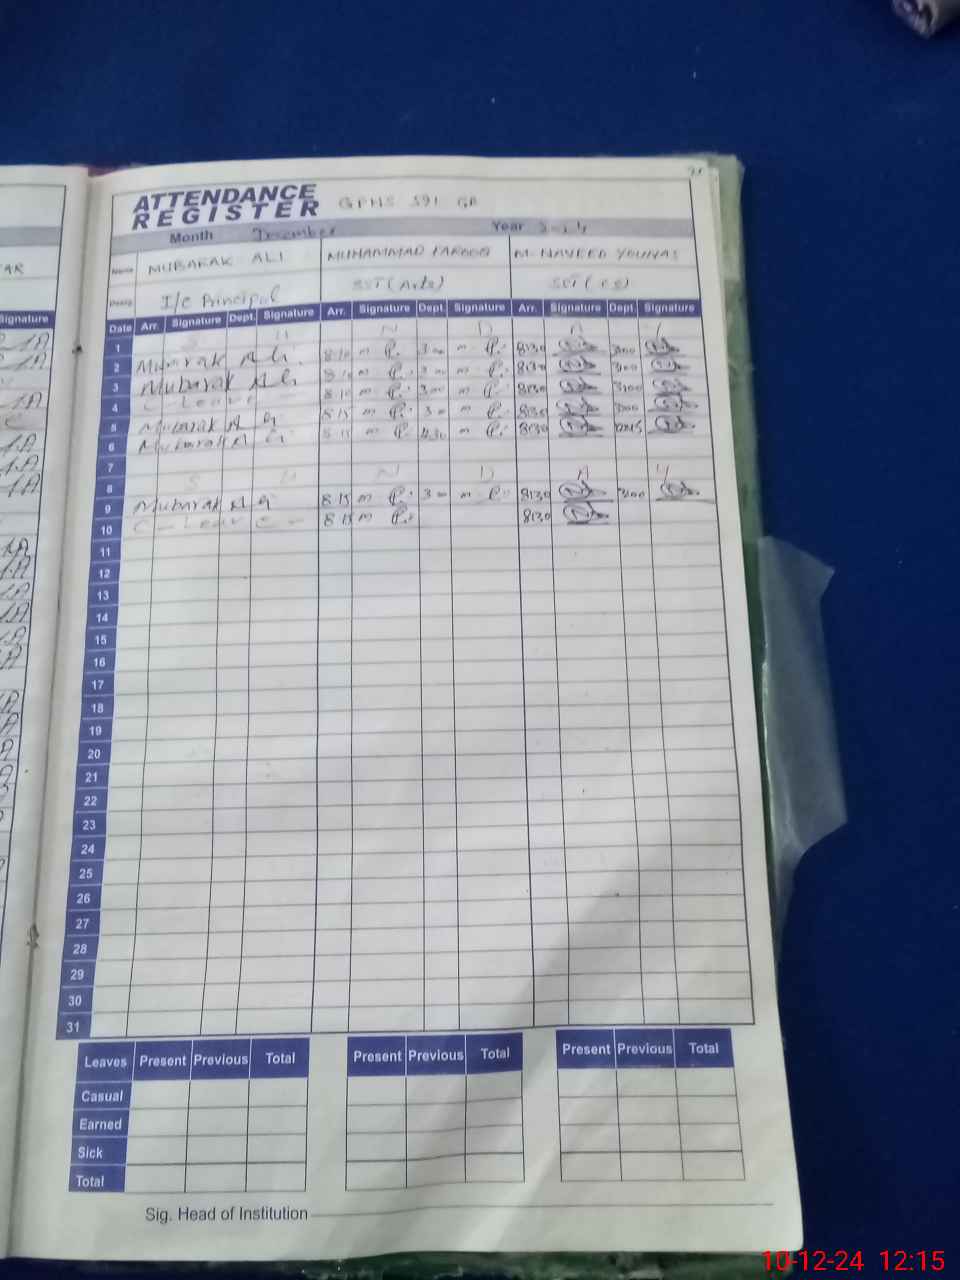 ATTENDANCE
REGISTER GPHS 591 GB
Month December Year 2024
Name MUBARAK ALI MUHAMMAD FAROOQ M. NAVEED YOUNAS
Desig. I/c Principal SST (Arts) SST
Date Arr. Signature Dept. Signature Arr. Signature Dept. Signature Arr. Signature Dept. Signature
1 S U N D A Y
2 Mubarak Ali 8:10 3:00 8:30 3:00
3 Mubarak Ali 8:10 3:00 8:30 3:00
4 C - Leave 8:10 3:00 8:30 3:00
5 Mubarak Ali 8:15 3:00 8:30 3:00
6 Mubarak Ali 8:15 8:30
7
8 S U N D A Y
9 Mubarak Ali 8:15 3:00 8:30 3:00
10 C - Leave - 8:15 8:30
11
12
13
14
15
16
17
18
19
20
21
22
23
24
25
26
27
28
29
30
31
Leaves Present Previous Total Present Previous Total Present Previous Total
Casual
Earned
Sick
Total
Sig. Head of Institution
10-12-24 12:15